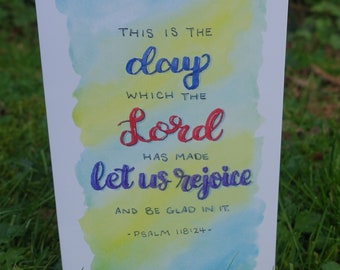 THIS IS THE
day
WHICH THE
Lord
HAS MADE
let us rejoice
AND BE GLAD IN IT.
-PSALM 118:24-